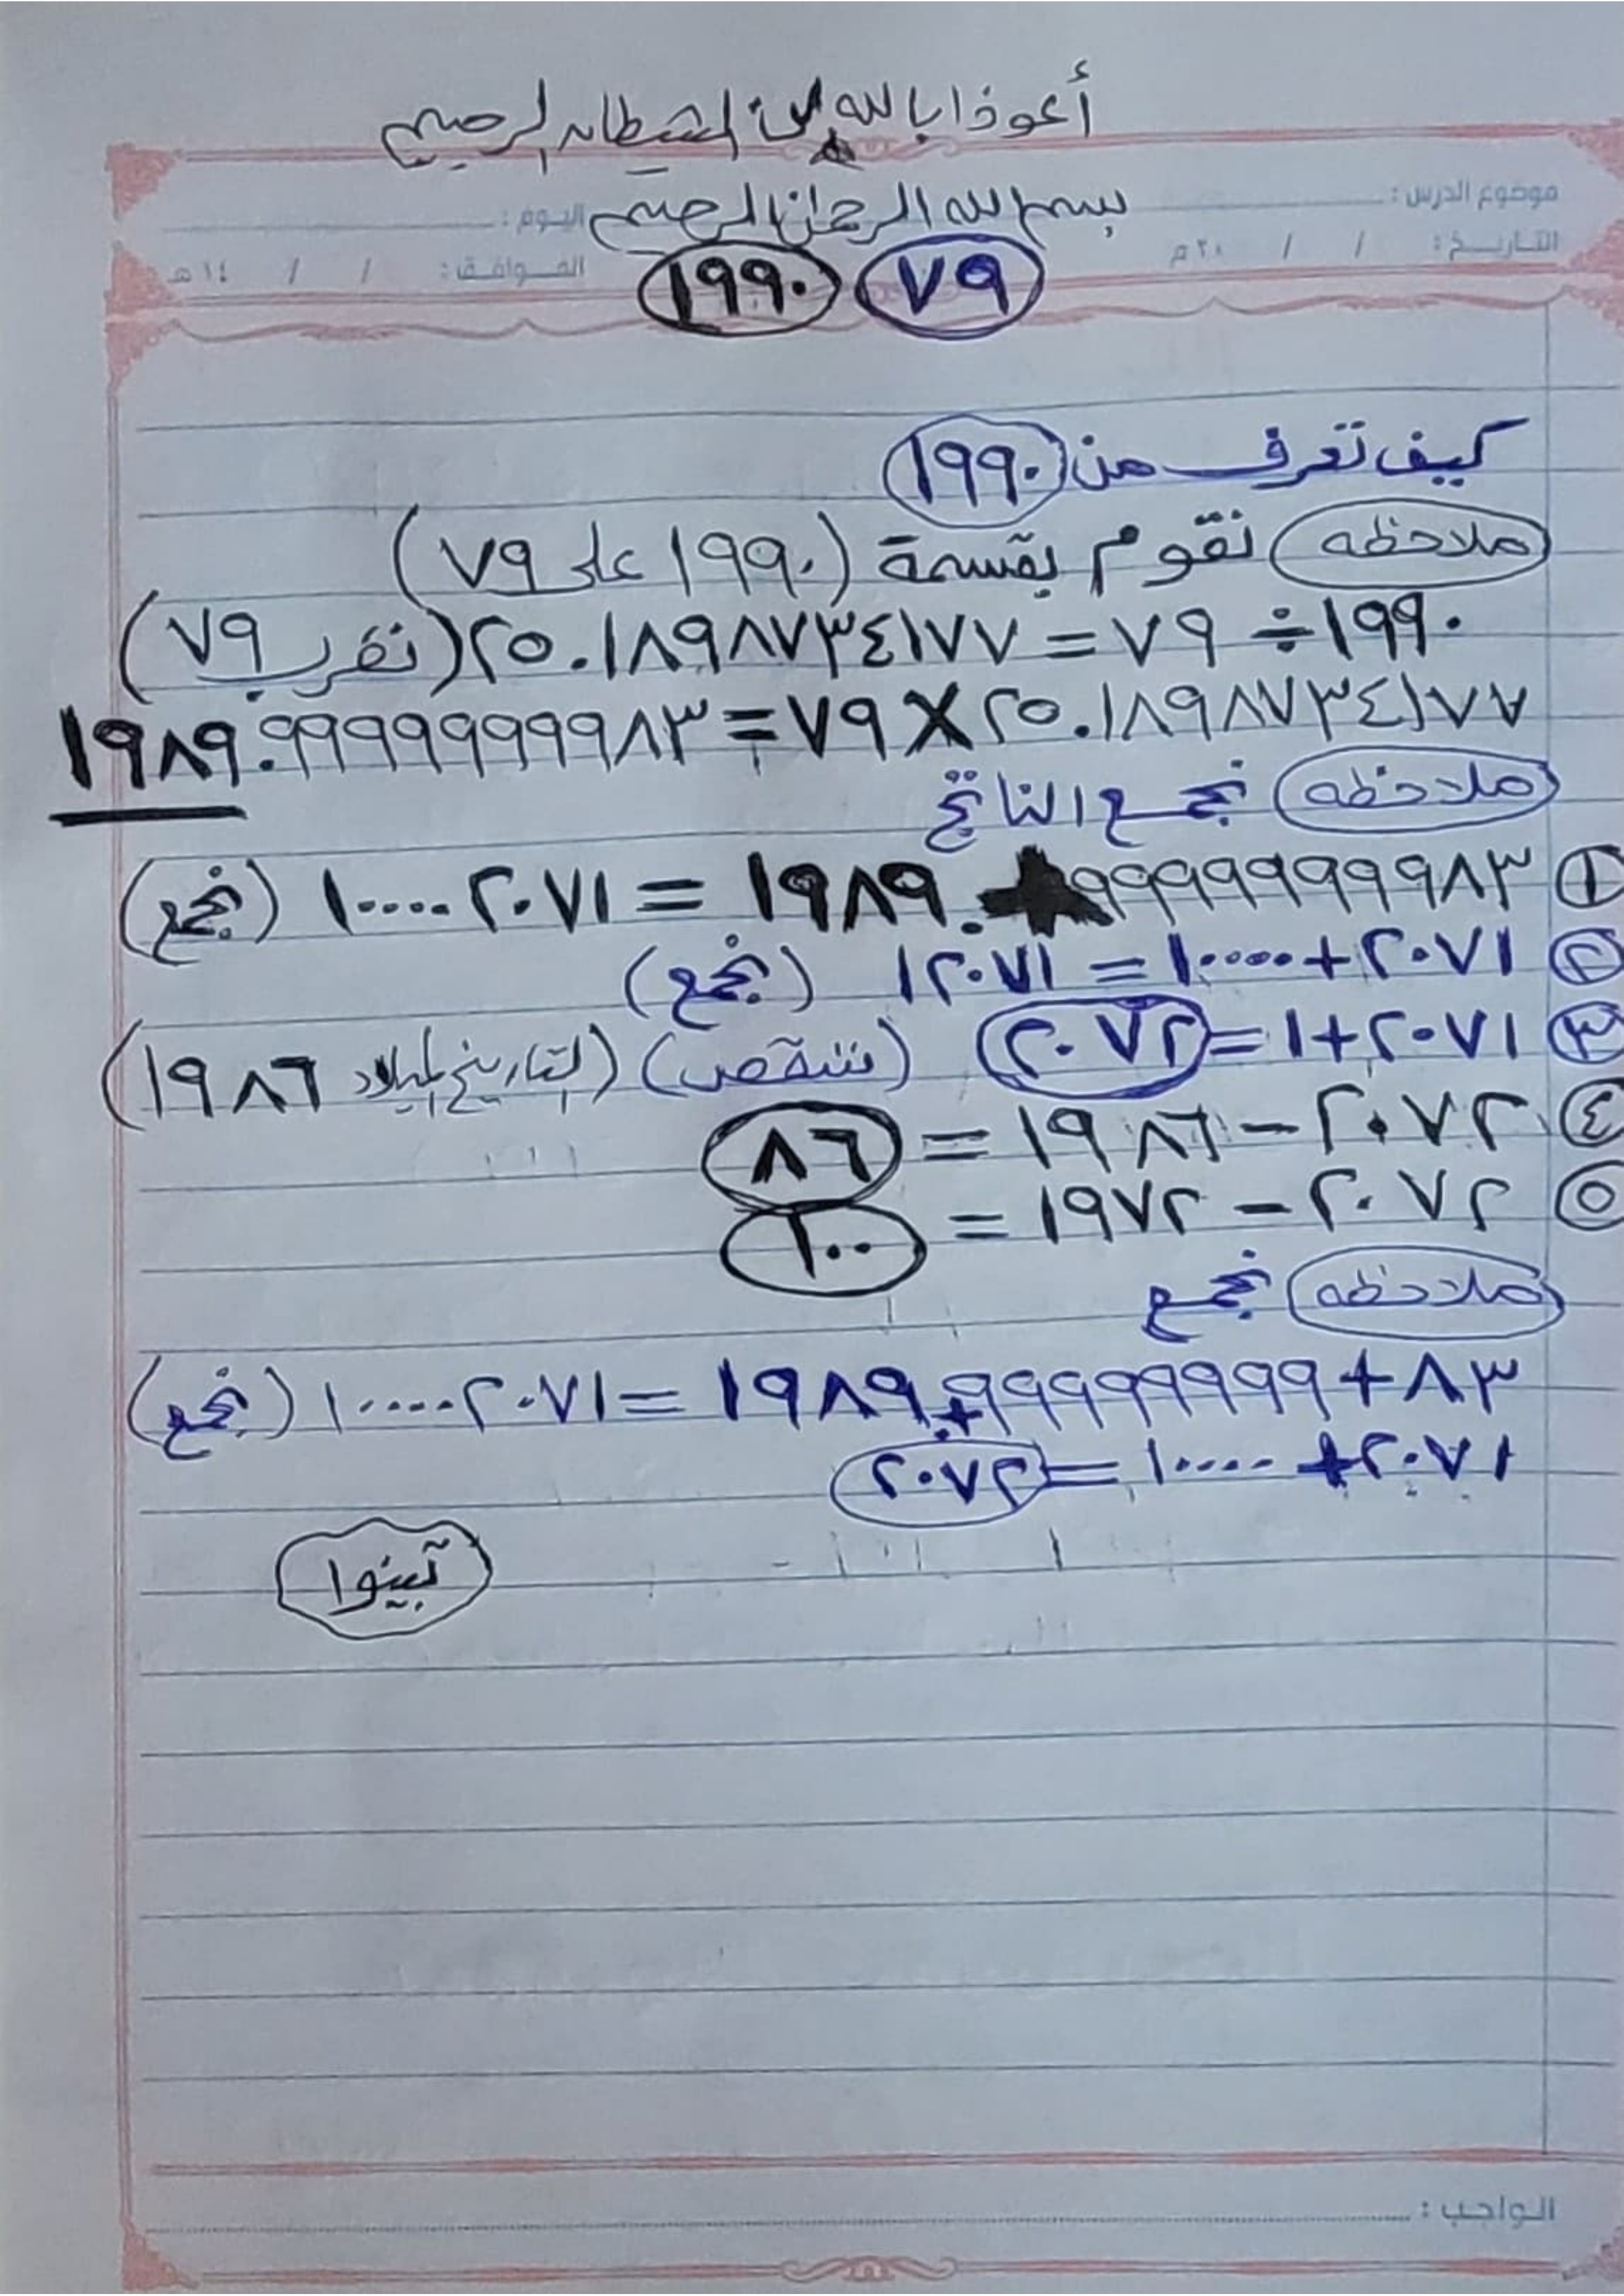 أعوذ بالله من الشيطان الرجيم
موضوع الدرس :
بسم الله الرحمن الرحيم
اليوم :
التاريخ : / / ٢٠م
الموافق : / / ١٤هـ
٧٩ ١٩٩٠
كيف تعرف من ١٩٩٠
ملاحظه نقوم بقسمة (١٩٩٠ على ٧٩)
١٩٩٠ ÷ ٧٩ = ٢٥.١٨٩٨٧٣٤١٧٧ (نضرب ٧٩)
٢٥.١٨٩٨٧٣٤١٧٧ X ٧٩ = ١٩٨٩.٩٩٩٩٩٩٩٩٨٣
ملاحظه نجمع الناتج
١ ٩٩٩٩٩٩٩٩٨٣ + ١٩٨٩ = ١٠٠٠٠٢٠٧١ (نجمع)
٢ ٢٠٧١+١٠٠٠٠ = ١٢٠٧١ (نجمع)
٣ ٢٠٧١+١ = ٢٠٧٢ (ننقص) (التاريخ الميلاد ١٩٨٦)
٤ ٢٠٧٢ – ١٩٨٦ = ٨٦
٥ ٢٠٧٢ – ١٩٧٢ = ١٠٠
ملاحظه نجمع
٨٣+٩٩٩٩٩٩٩٩+١٩٨٩ = ١٠٠٠٠٢٠٧١ (نجمع)
٢٠٧١+ ١٠٠٠٠ = ٢٠٧٢
تبينوا
الواجب :